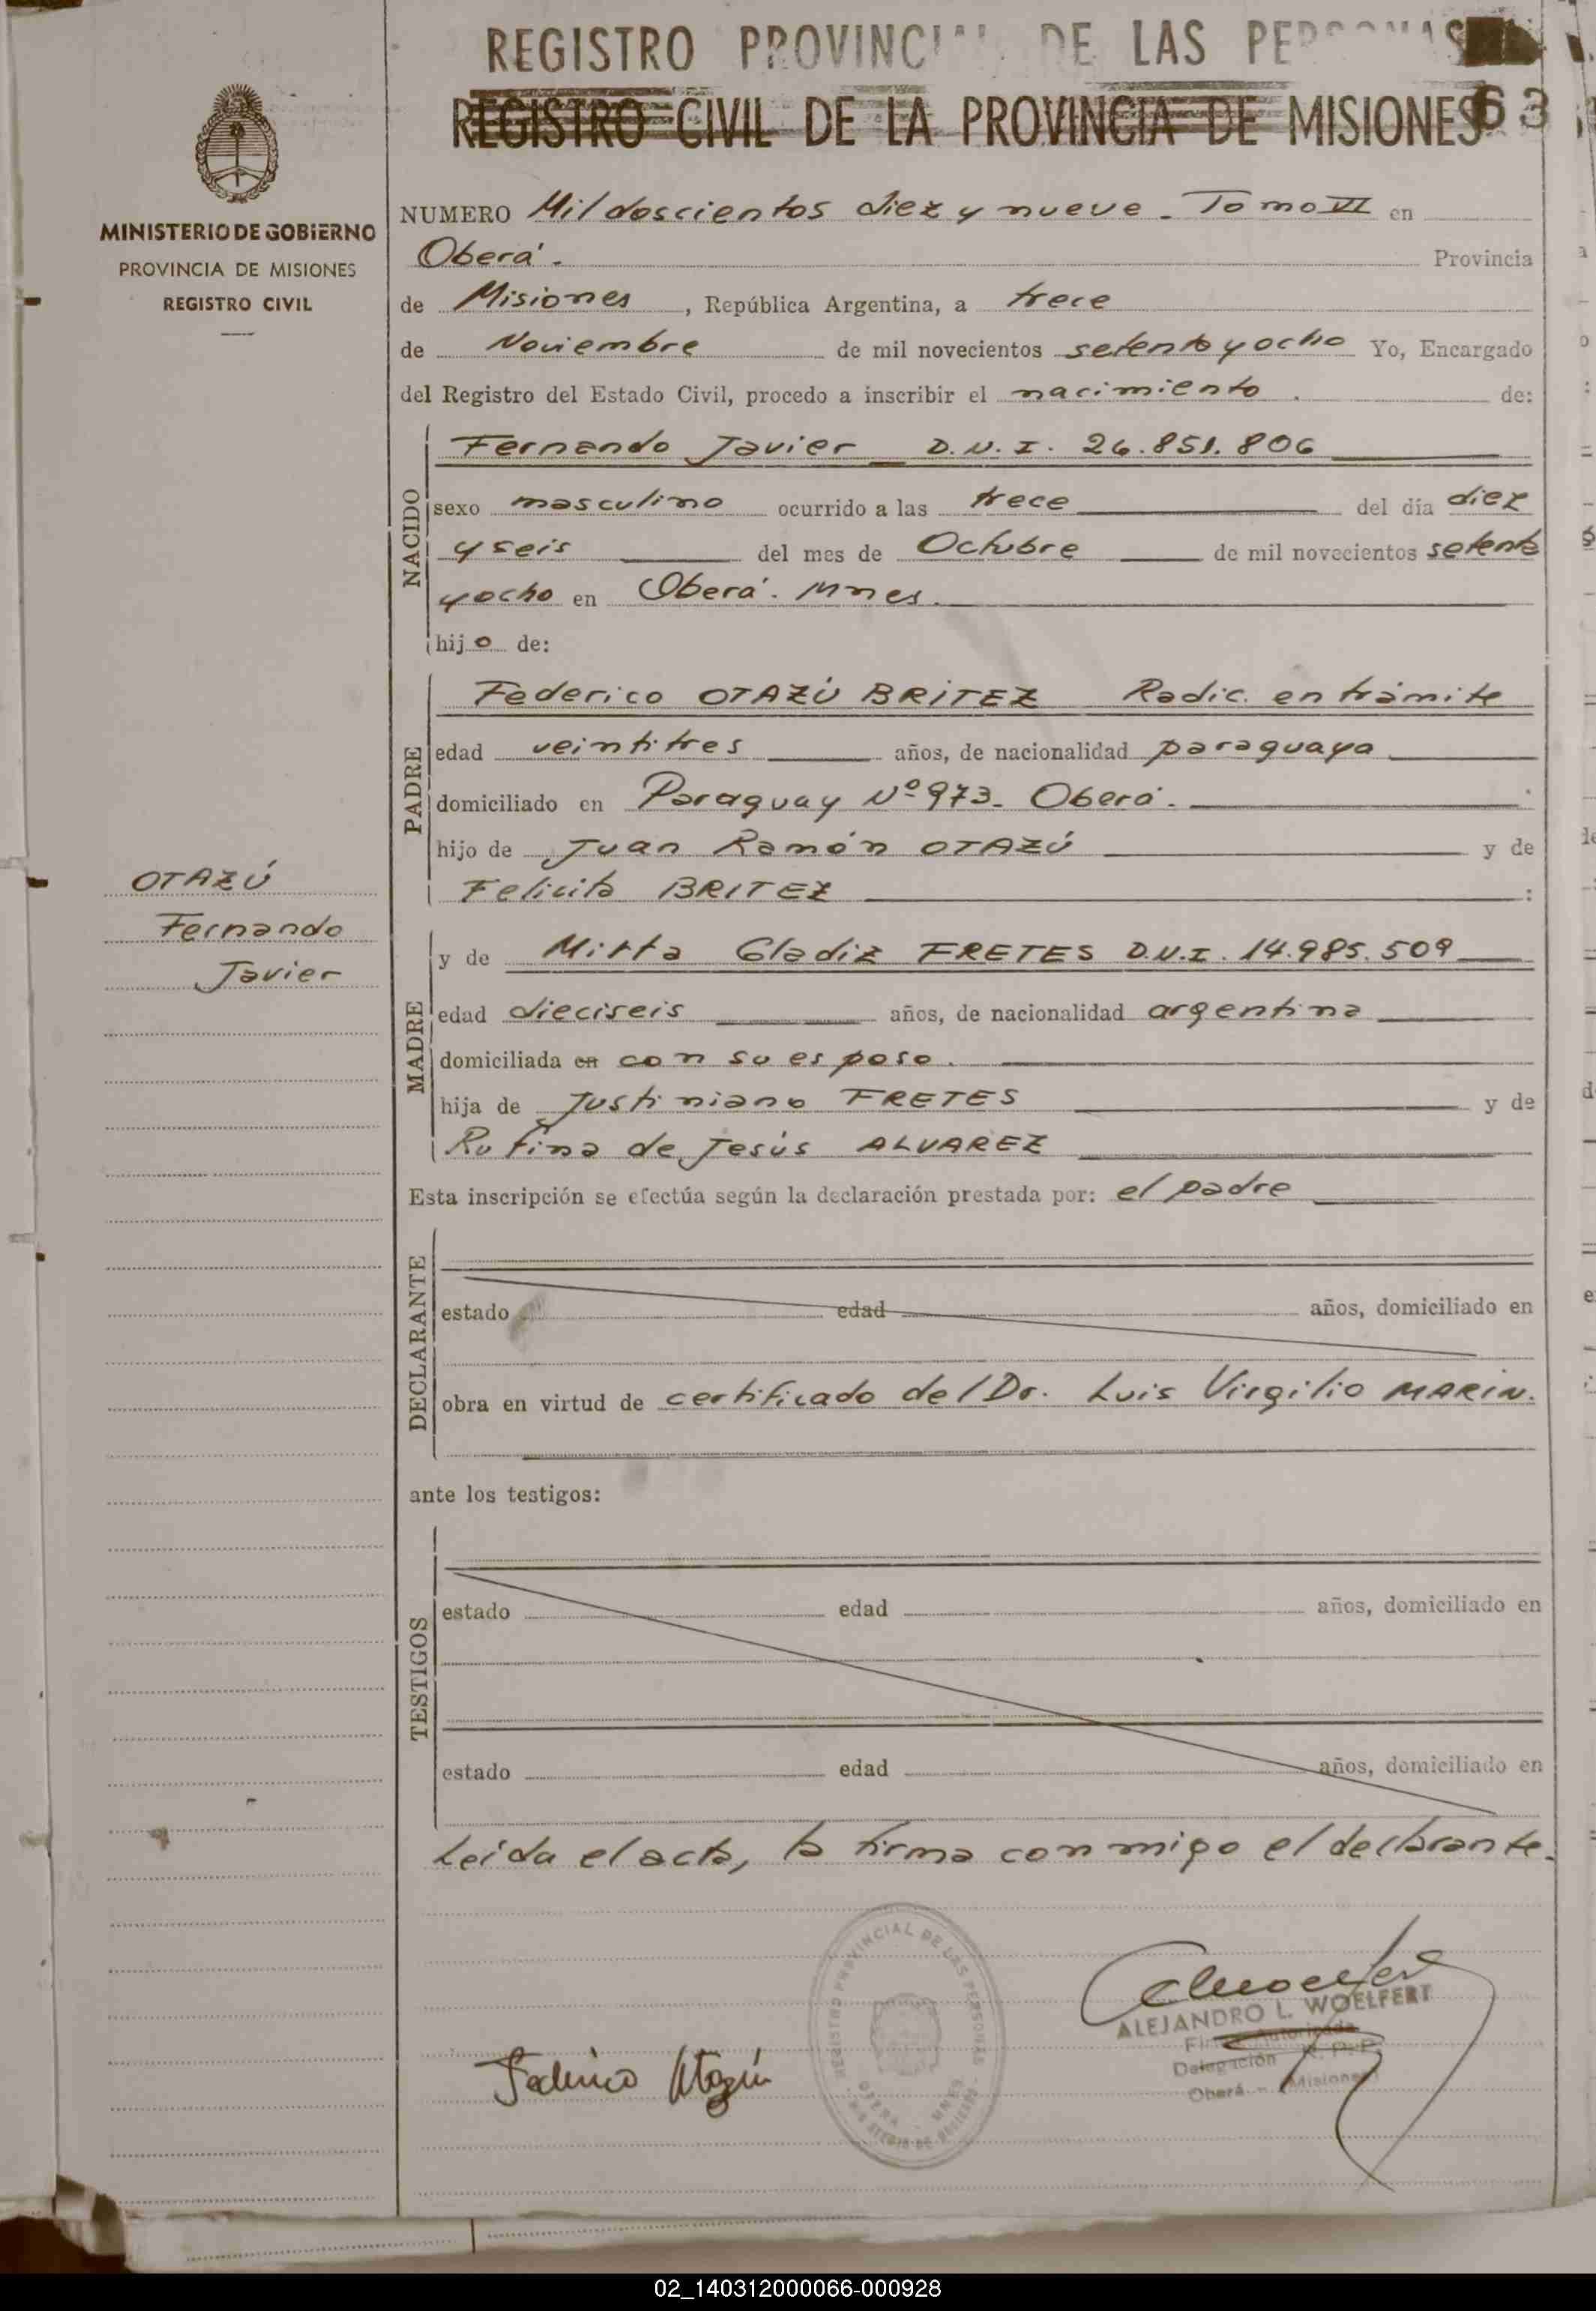 REGISTRO PROVINCIAL DE LAS PERSONAS
REGISTRO CIVIL DE LA PROVINCIA DE MISIONES 63
MINISTERIO DE GOBIERNO
PROVINCIA DE MISIONES
REGISTRO CIVIL
NUMERO Mil doscientos diez y nueve. Tomo VI en
Oberá. Provincia
de Misiones, República Argentina, a trece
de Noviembre de mil novecientos setenta y ocho Yo, Encargado
del Registro del Estado Civil, procedo a inscribir el nacimiento. de:
NACIDO
Fernando Javier D.N.I. 26.851.806
sexo masculino ocurrido a las trece del día diez
y seis del mes de Octubre de mil novecientos setenta
y ocho en Oberá. Mnes.
hijo de:
PADRE
Federico OTAZÚ BRITEZ Radic. en trámite
edad veintitres años, de nacionalidad paraguaya
domiciliado en Paraguay Nº 973. Oberá.
hijo de Juan Ramón OTAZÚ y de
Felicita BRITEZ :
OTAZÚ
Fernando
Javier
MADRE
y de Mirta Gladiz FRETES D.N.I. 14.985.509
edad dieciseis años, de nacionalidad argentina
domiciliada en con su esposo.
hija de Justiniano FRETES y de
Rufina de Jesús ALVAREZ
Esta inscripción se efectúa según la declaración prestada por: el padre
DECLARANTE
estado edad años, domiciliado en
obra en virtud de certificado del Dr. Luis Virgilio MARIN.
ante los testigos:
TESTIGOS
estado edad años, domiciliado en
estado edad años, domiciliado en
Leída el acta, la firma conmigo el declarante.
REGISTRO PROVINCIAL DE LAS PERSONAS
OBERA - MNES.
Federico Otazú
ALEJANDRO L. WOELFERT
Firma Autorizada
Delegación R. P. P.
Oberá - Misiones
02_140312000066-000928